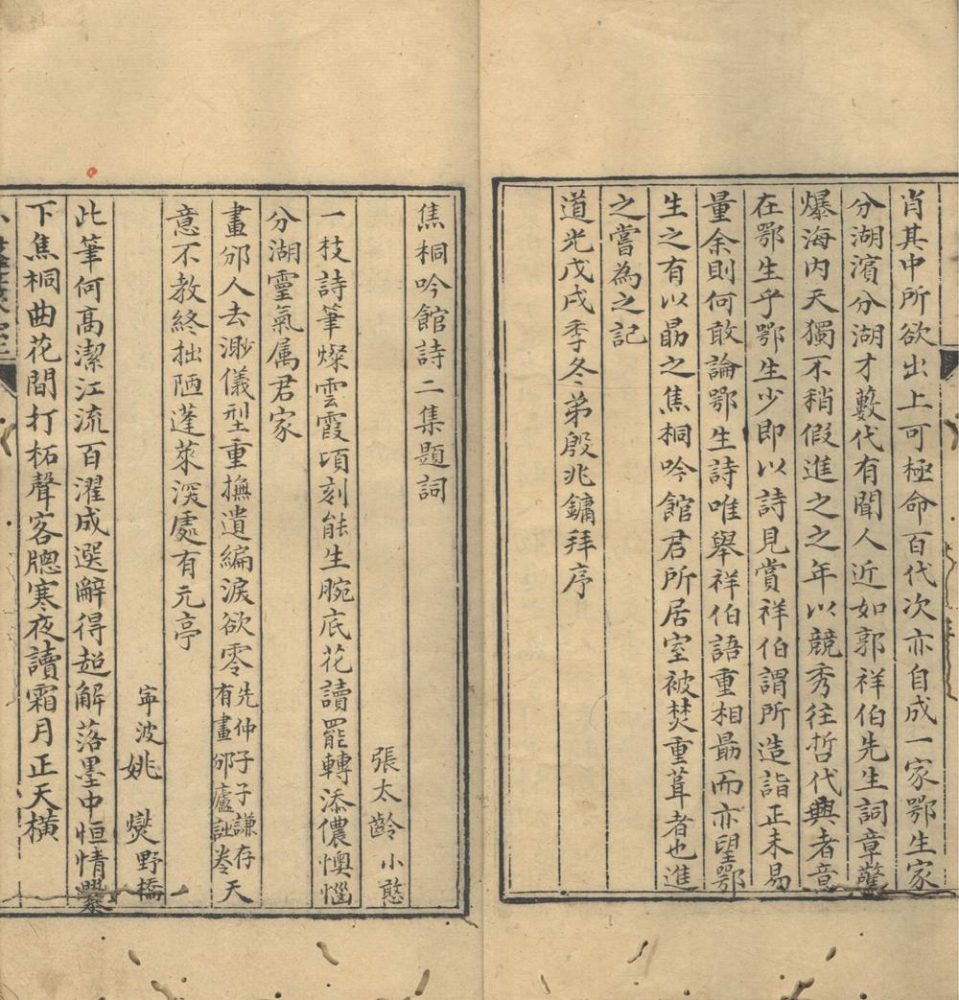 肖其中所欲出上可極命百代次亦自成一家鄂生家
分湖濱分湖才藪代有聞人近如郭祥伯先生詞章驚
爆海內天獨不稍假進之之年以競秀往哲代興者意
在鄂生乎鄂生少即以詩見賞祥伯謂所造詣正未易
量余則何敢論鄂生詩唯舉祥伯語重相勗而亦望鄂
生之有以勗之焦桐吟館君所居室被焚重葺者也進
之嘗為之記
道光戊戌季冬弟殷兆鏞拜序
焦桐吟館詩二集題詞
張太齡小憨
一枝詩筆燦雲霞頃刻能生腕底花讀罷轉添儂懊惱
分湖靈氣属君家
畫邠人去渺儀型重撫遺編淚欲零先仲子子謙存有畫邠廬詩卷天
意不教終拙陋蓬萊深處有元亭
寜波姚燮野橋
此筆何高潔江流百濯成選辭得超解落墨中恒情爨
下焦桐曲花間打柘聲客牕寒夜讀霜月正天橫